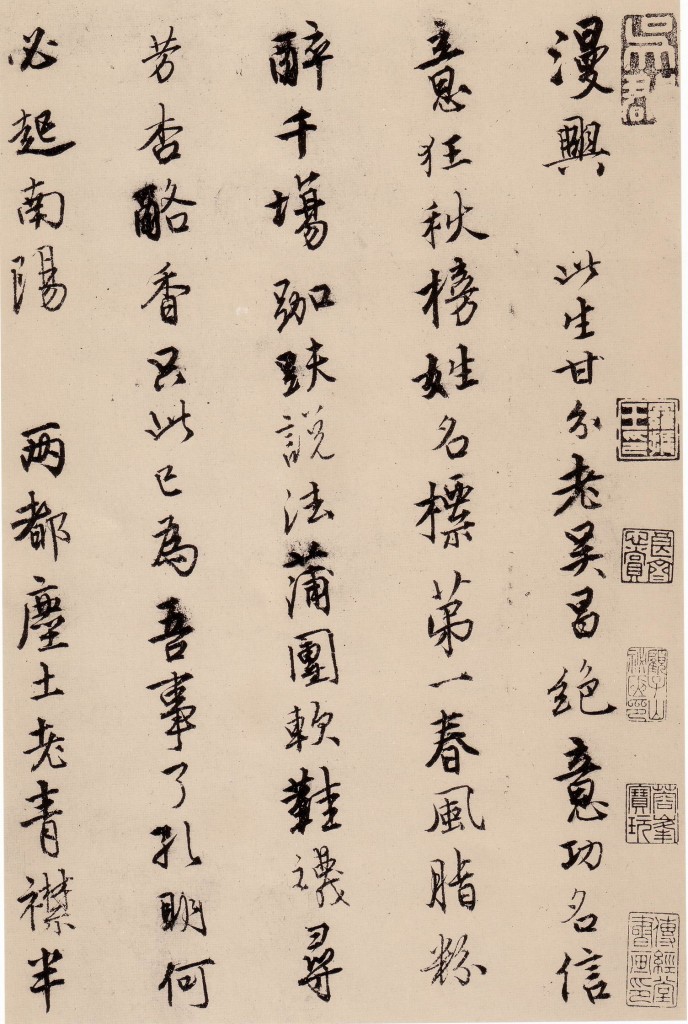 漫興 此生甘分老吴昌絶意功名信
意狂秋榜姓名標第一春風脂粉
醉千塲跏趺說法蒲團軟鞋襪尋
芳杏酪香只此已為吾事了孔明何
必起南陽 兩都塵土老青襟半